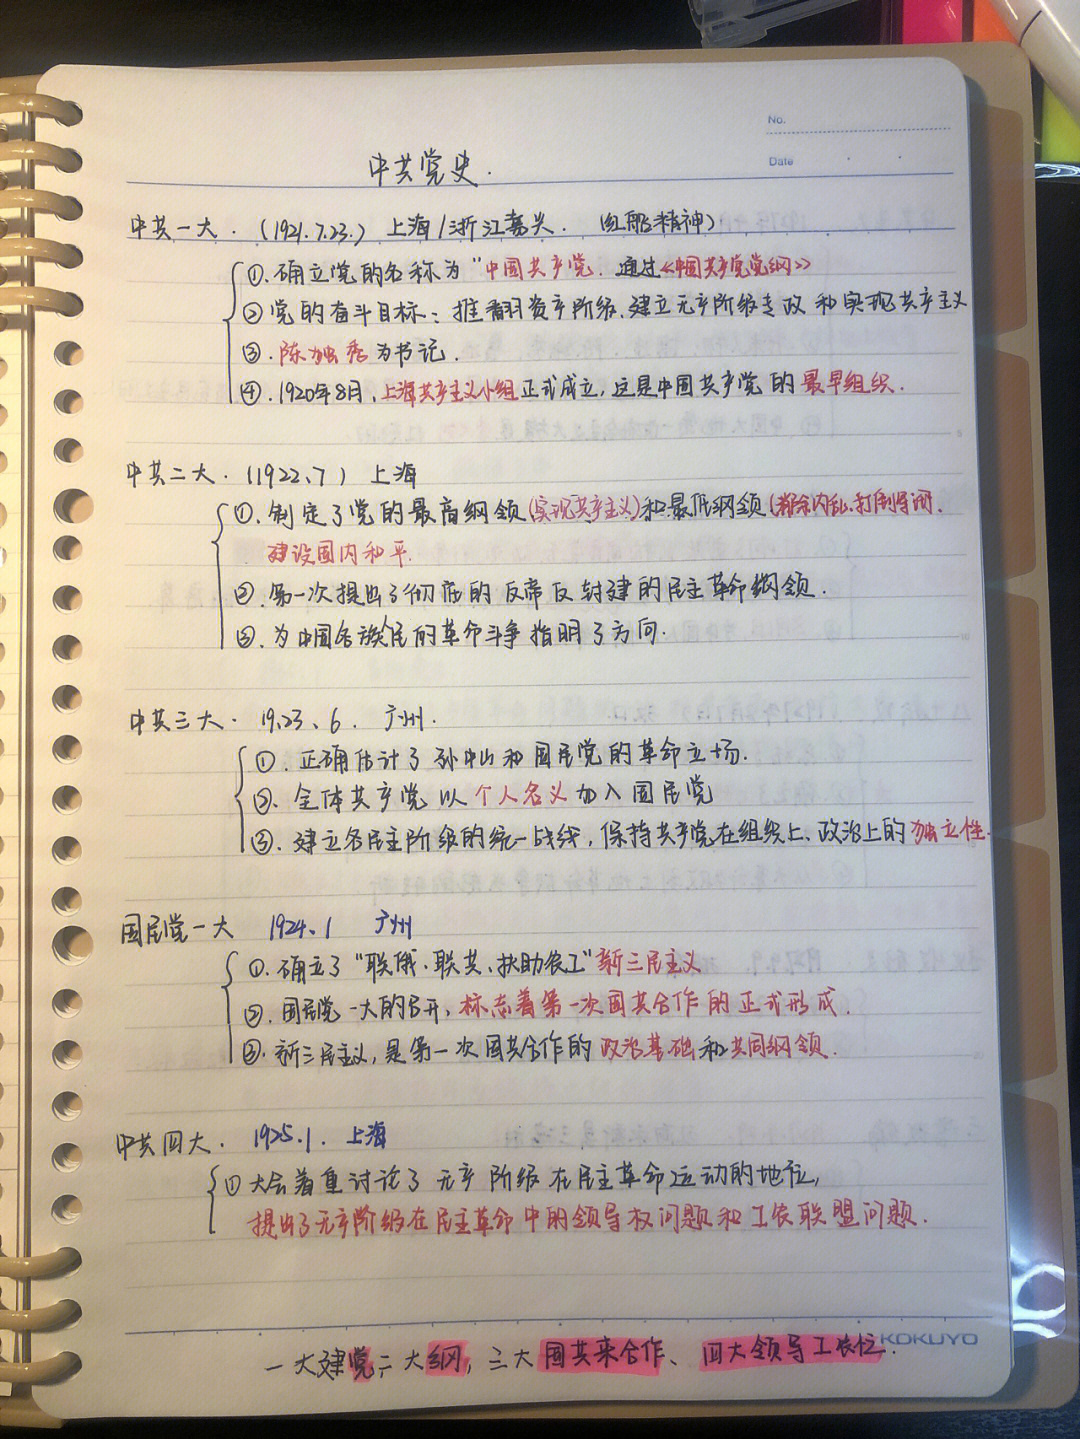 No.
Date
中共党史.
中共一大. (1921.7.23.) 上海/浙江嘉兴. (红船精神)
①.确立党的名称为"中国共产党. 通过《中国共产党党纲》
②党的奋斗目标:推翻资产阶级.建立无产阶级专政和实现共产主义
③.陈独秀为书记.
④.1920年8月,上海共产主义小组正式成立,这是中国共产党的最早组织.
中共二大. (1922、7) 上海
①.制定了党的最高纲领(实现共产主义)和最低纲领(消除内乱.打倒军阀.
建设国内和平.
②.第一次提出了彻底的反帝反封建的民主革命纲领.
③.为中国各族人民的革命斗争指明了方向.
中共三大. 1923、6. 广州.
①.正确估计了孙中山和国民党的革命立场.
②.全体共产党以个人名义加入国民党
③.建立各民主阶级的统一战线,保持共产党在组织上、政治上的独立性.
国民党一大 1924、1 广州
①.确立了"联俄.联共、扶助农工"新三民主义
②.国民党一大的召开,标志着第一次国共合作的正式形成.
③.新三民主义,是第一次国共合作的政治基础和共同纲领.
中共四大. 1925.1. 上海
①大会着重讨论了无产阶级在民主革命运动的地位,
提出了无产阶级在民主革命中的领导权问题和工农联盟问题.
KOKUYO
一大建党二大纲,三大国共来合作、四大领导工农位.